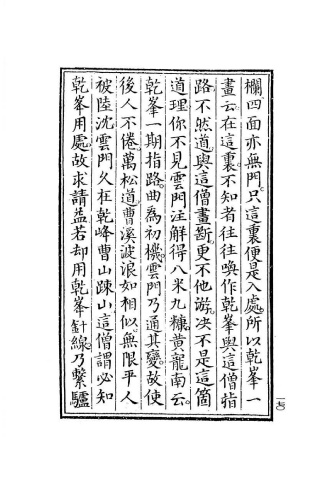 欄四面亦無門。只這裏便是入處。所以乾峯一
畫云在這裏。不知者往往喚作乾峯與這僧指
路。不然道與這僧畫斷。更不他游。决不是這箇
道理。你不見雲門注解得八米九糠。黃龍南云。
乾峯一期指路。曲為初機。雲門乃通其變。故使
後人不倦。萬松道曹溪波浪如相似。無限平人
被陸沈。雲門久在乾峰曹山踈山。這僧謂必知
乾峯用處。故求請益。若却用乾峯針線。乃繫驢